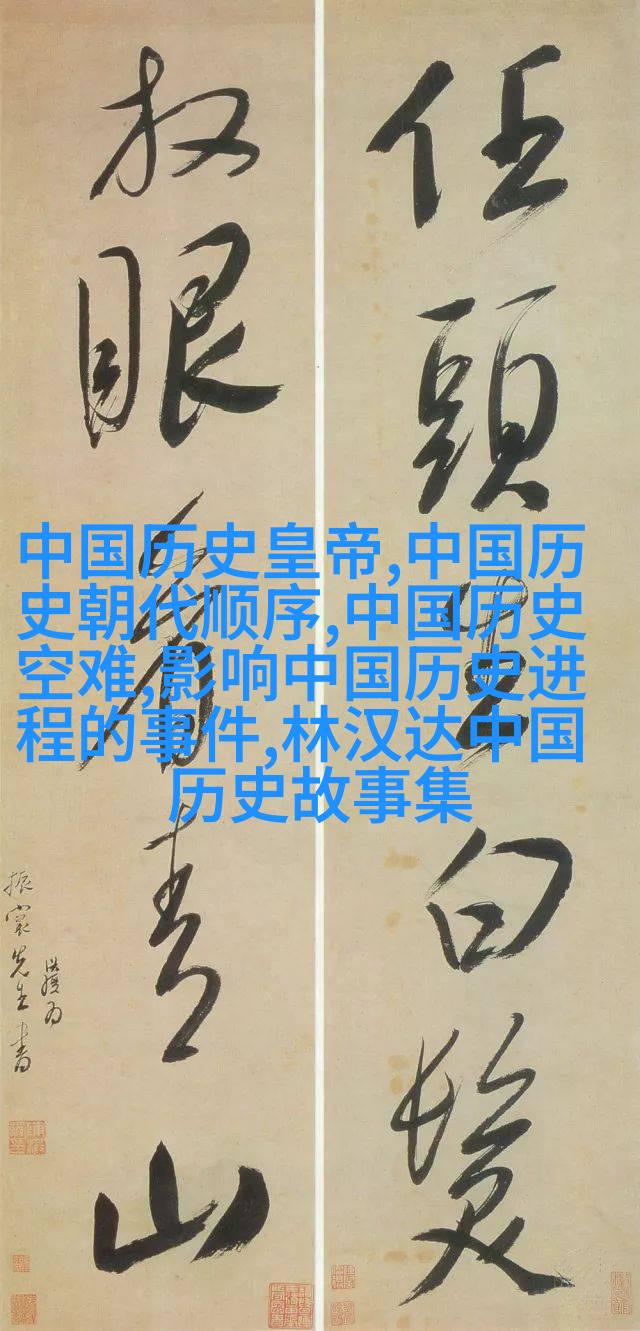 任頭生白髮
放眼看青山
洪綬為
先生書
中国历史皇帝,中国历
史朝代顺序,中国历史
空难,影响中国历史进
程的事件,林汉达中国
历史故事集